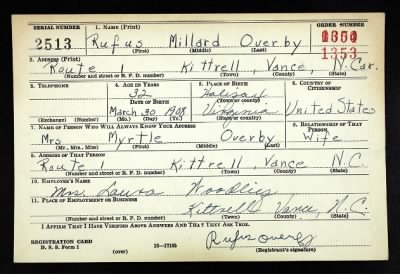 SERIAL NUMBER 1. NAME (Print) ORDER NUMBER
2513 Rufus Millard Overby 1353
(First) (Middle) (Last)
2. ADDRESS (Print)
Route 1 Kittrell, Vance, N. Car.
(Number and street or R. F. D. number) (Town) (County) (State)
3. TELEPHONE 4. AGE IN YEARS 5. PLACE OF BIRTH 6. COUNTRY OF CITIZENSHIP
32 Halifax
DATE OF BIRTH (Town or county)
March 30 1908 Virginia United States
(Exchange) (Number) (Mo.) (Day) (Yr.) (State or country)
7. NAME OF PERSON WHO WILL ALWAYS KNOW YOUR ADDRESS 8. RELATIONSHIP OF THAT PERSON
Mrs Myrtle Overby Wife
(Mr., Mrs., Miss) (First) (Middle) (Last)
9. ADDRESS OF THAT PERSON
Route 1 Kittrell, Vance N.C.
(Number and street or R. F. D. number) (Town) (County) (State)
10. EMPLOYER'S NAME
Mrs. Laura
11. PLACE OF EMPLOYMENT OR BUSINESS
Kittrell Vance, N.C.
(Number and street or R. F. D. number) (Town) (County) (State)
I AFFIRM THAT I HAVE VERIFIED ABOVE ANSWERS AND THAT THEY ARE TRUE.
REGISTRATION CARD Rufus Overby
D. S. S. Form 1 (over) 16—17105 (Registrant's signature)